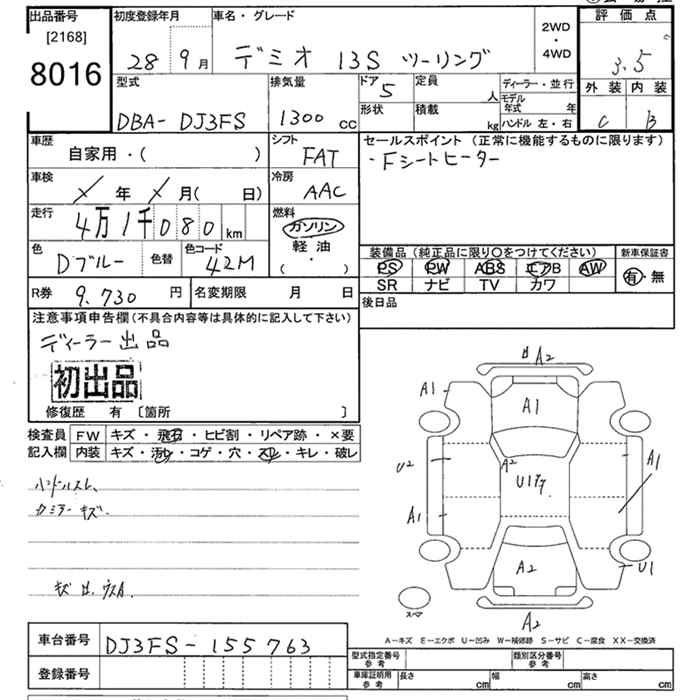 出品番号 [2168] 8016
初度登録年月 28年 9月
車名・グレード デミオ 13S ツーリング
2WD・4WD
評価点 3.5
外装 C 内装 B
型式 DBA- DJ3FS
排気量 1300 cc
ドア 5
形状
定員 人
積載 kg
ディーラー・並行
モデル年式 年
ハンドル 左・右
車歴 自家用・( )
シフト FAT
セールスポイント (正常に機能するものに限ります)
・Fシートヒーター
車検 年 月( 日)
冷房 AAC
走行 4万1千080 km
燃料 ガソリン 軽油 ( ・ )
色 Dブルー 色替 色コード 42M
装備品 (純正品に限り○をつけてください) 新車保証書
PS PW ABS エアB AW 有・無
SR ナビ TV カワ
R券 9,730 円 名変期限 月 日
後日品
注意事項申告欄 (不具合内容等は具体的に記入して下さい)
ディーラー出品
初出品
修復歴 有 [箇所 ]
検査員 FW キズ・飛石・ヒビ割・リペア跡・×要
記入欄 内装 キズ・汚レ・コゲ・穴・スレ・キレ・破レ
ハンドルスレ
カミラーキズ
A2
A1 A1
U2 A2 U1 A1
A1
A2 U1
スペア A2
A-キズ E-エクボ U-凹み W-補修跡 S-サビ C-腐食 XX-交換済
車台番号 DJ3FS-155763
登録番号
型式指定番号 参考 類別区分番号 参考
車庫証明用 参考 長さ cm 幅 cm 高さ cm